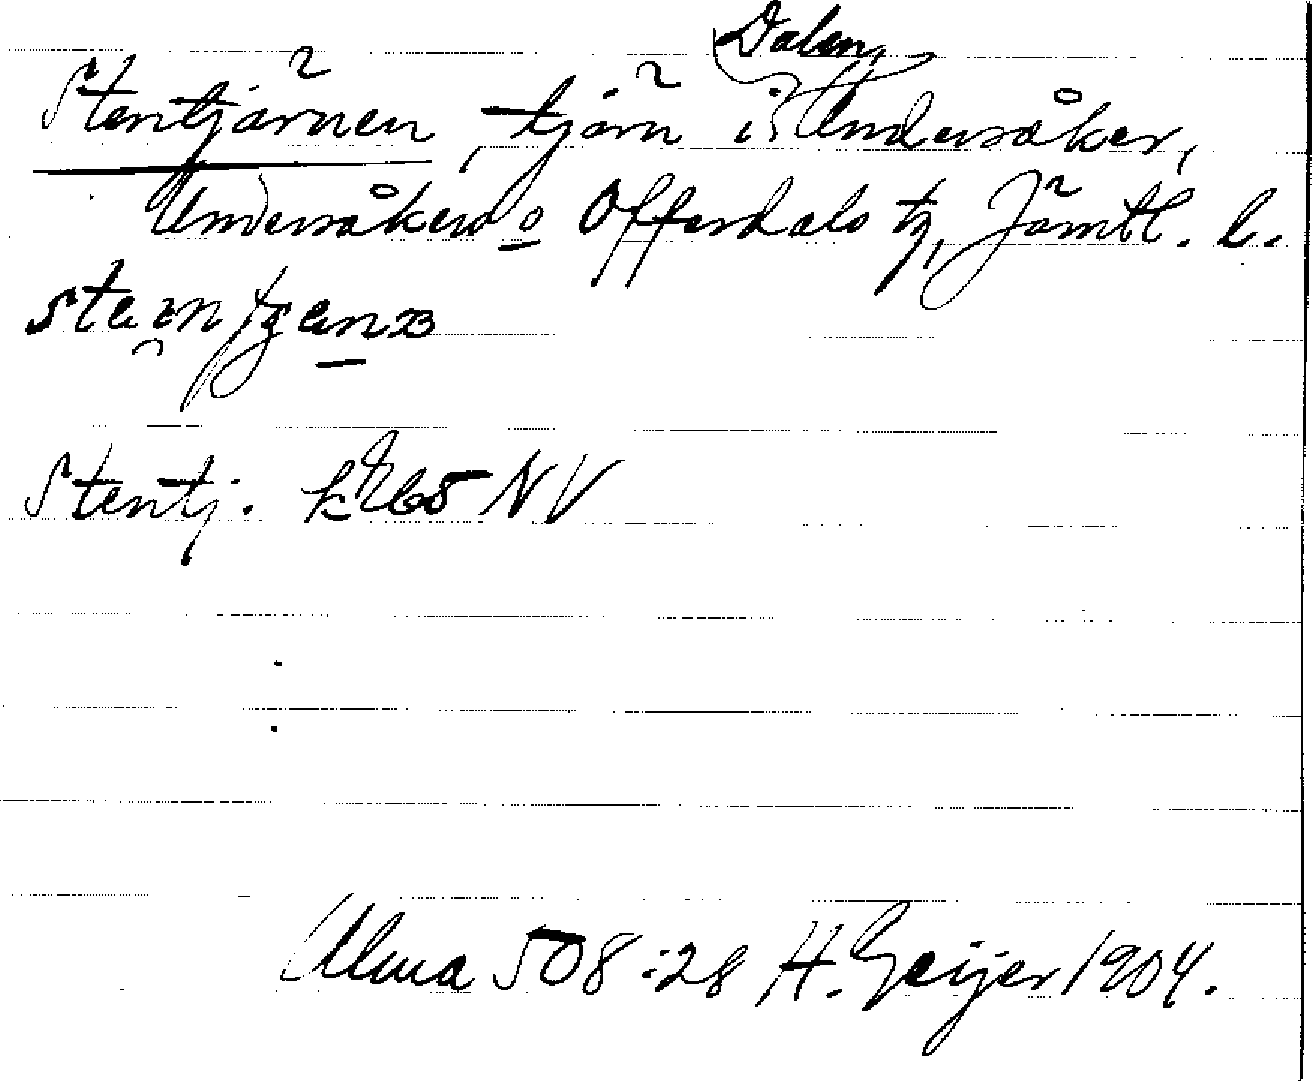 Dalen,
Stentjärnen, tjärn i Undersåker,
Undersåkers o Offerdals tg, Jämtl. l.
Stentj. k 65 NV
Ulma 508:28 H. Geijer 1904.